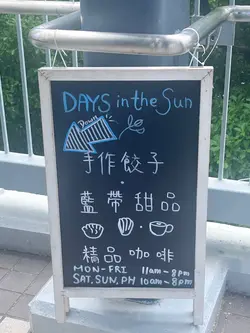 DAYS in the Sun
Down
手作餃子
·
藍帶甜品
精品咖啡
MON-FRI 11am-8pm
SAT.SUN.PH 10am-8pm